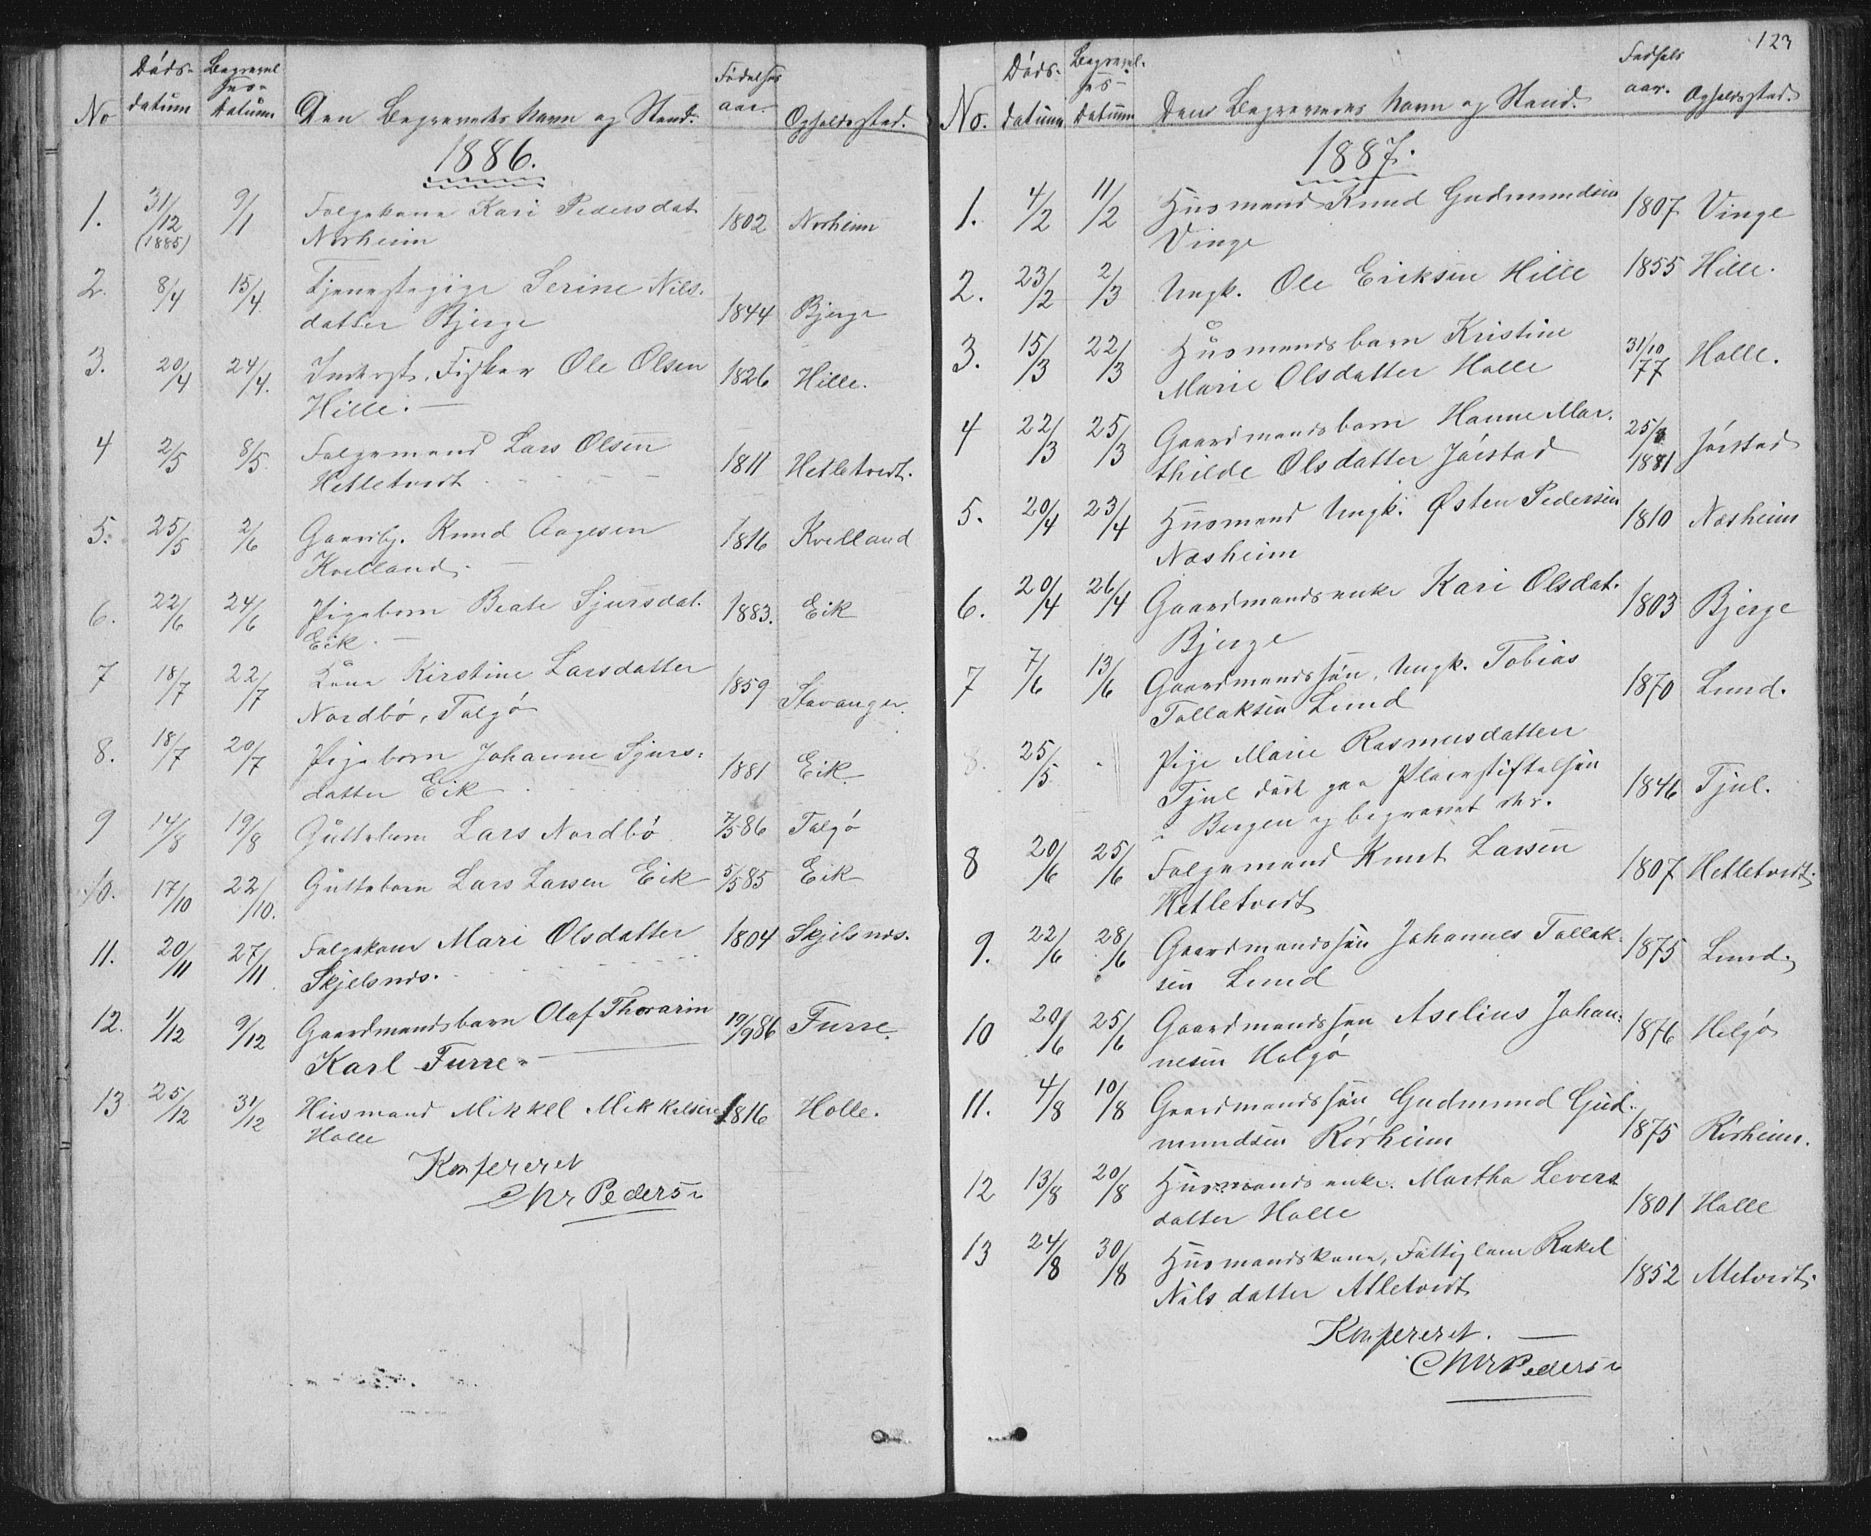 No
Døds-
datum
Begravel
ses-
Datum
Den Begravedes Navn og Stand.
Fødselses
aar.
Opholdssted.
1886.
1. 31/12 (1885) 9/1 Folgekone Kari Pedersdat. 1802 Norheim
Norheim
2. 8/4 15/4 Tjenestepige Serine Nils-
datter Bjerge 1844 Bjerge
3. 20/4 24/4. Inderst, Fisker Ole Olsen 1826 Hille.
Hille.
4 2/5 8/5 Folgemand Lars Olsen
Hetletvedt 1811 Hetletvedt.
5. 25/5 2/6 Gaardbr. Knud Aagesen 1816 Kvelland
Kvelland.
6. 22/6 24/6 Pigebarn Beate Sjursdat. 1883. Eik
Eik.
7 18/7 22/7 Kone Kirstine Larsdatter 1859 Stavanger.
Nordbø, Talgø
8. 18/7 20/7 Pigebarn Johanne Sjurs-
datter Eik 1881 Eik
9 14/8 19/8 Guttebarn Lars Nordbø 7/5 86 Talgø
10. 17/10 22/10. Guttebarn Lars Larsen Eik 5/5 85 Eik
11. 20/11 27/11 Folgekone Mari Olsdatter 1804 Skjelsnes.
Skjelsnes.
12. 1/12 9/12 Gaardmandsbarn Olaf Thorarin 19/9 86 Furre.
Karl Furre.
13 25/12 31/12 Husmand Mikkel Mikkelsen 1816 Holle.
Holle
Konfereret
Chr Pedersen
123
No.
Døds-
datum
Begravel-
ses-
Datum
Den Begravedes Navn og Stand.
Fødsels
aar.
Opholdssted.
1887.
1. 4/2 11/2 Husmand Knud Gudmundsen 1807 Vinge
Vinge
2. 23/2 2/3 Ungk. Ole Eriksen Hille 1855 Hille.
3. 15/3 22/3 Husmandsbarn Kristine 31/10 77 Halle.
Marie Olsdatter Halle
4 22/3 25/3 Gaardmandsbarn Hanne Mar-
thilde Olsdatter Jørstad 1881 Jørstad
5. 20/4 23/4 Husmand Ungk. Østen Pedersen 1810 Næsheim
Næsheim
6. 20/4 26/4 Gaardmandsenke Kari Olsdat. 1803 Bjerge
Bjerge
7 7/6 13/6 Gaardmandssøn, Ungk. Tobias 1870 Lund.
Tollaksen Lund
8. 25/5 - Pige Marie Rasmusdatter
Tjul død paa Pleiestiftelsen 1846 Tjul.
i Bergen og begravet der.
8 20/6 25/6 Folgemand Knut Larsen 1807 Hetletvedt.
Hetletvedt
9. 22/6 28/6 Gaardmandssøn Johannes Tollak- 1875 Lund.
sen Lund
10 20/6 25/6 Gaardmandssøn Aselius Johan- 1876 Helgø
nesen Helgø
11. 4/8 10/8 Gaardmandssøn Gudmund Gud-
mundsen Rørheim 1875 Rørheim.
12 13/8 20/8 Husmandsenke Martha Levers
datter Halle 1801 Halle
13 24/8 30/8 Husmandskone, Fattiglem Rakel
Nilsdatter Atletvedt 1852
Konfereret.
Chr Pedersen